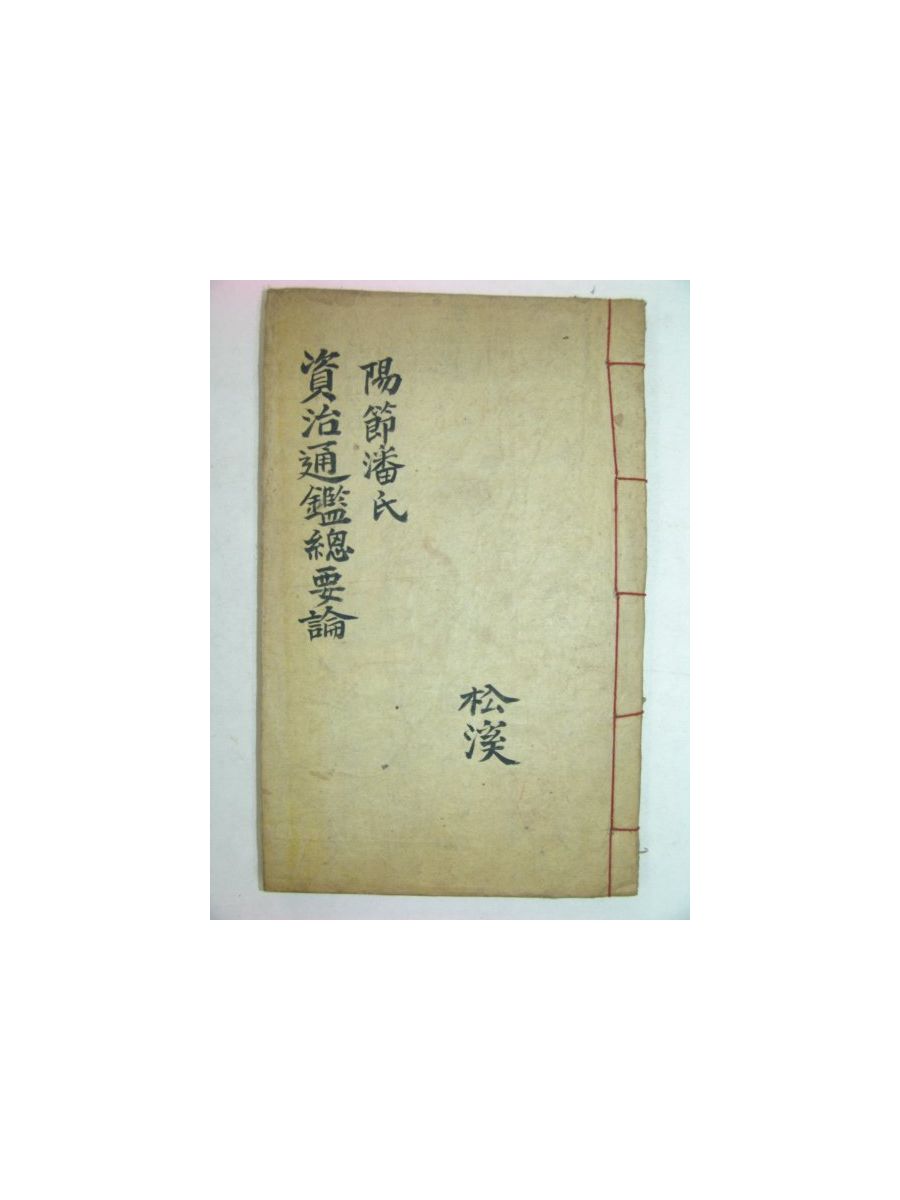 松溪
陽節潘氏
資治通鑑總要論